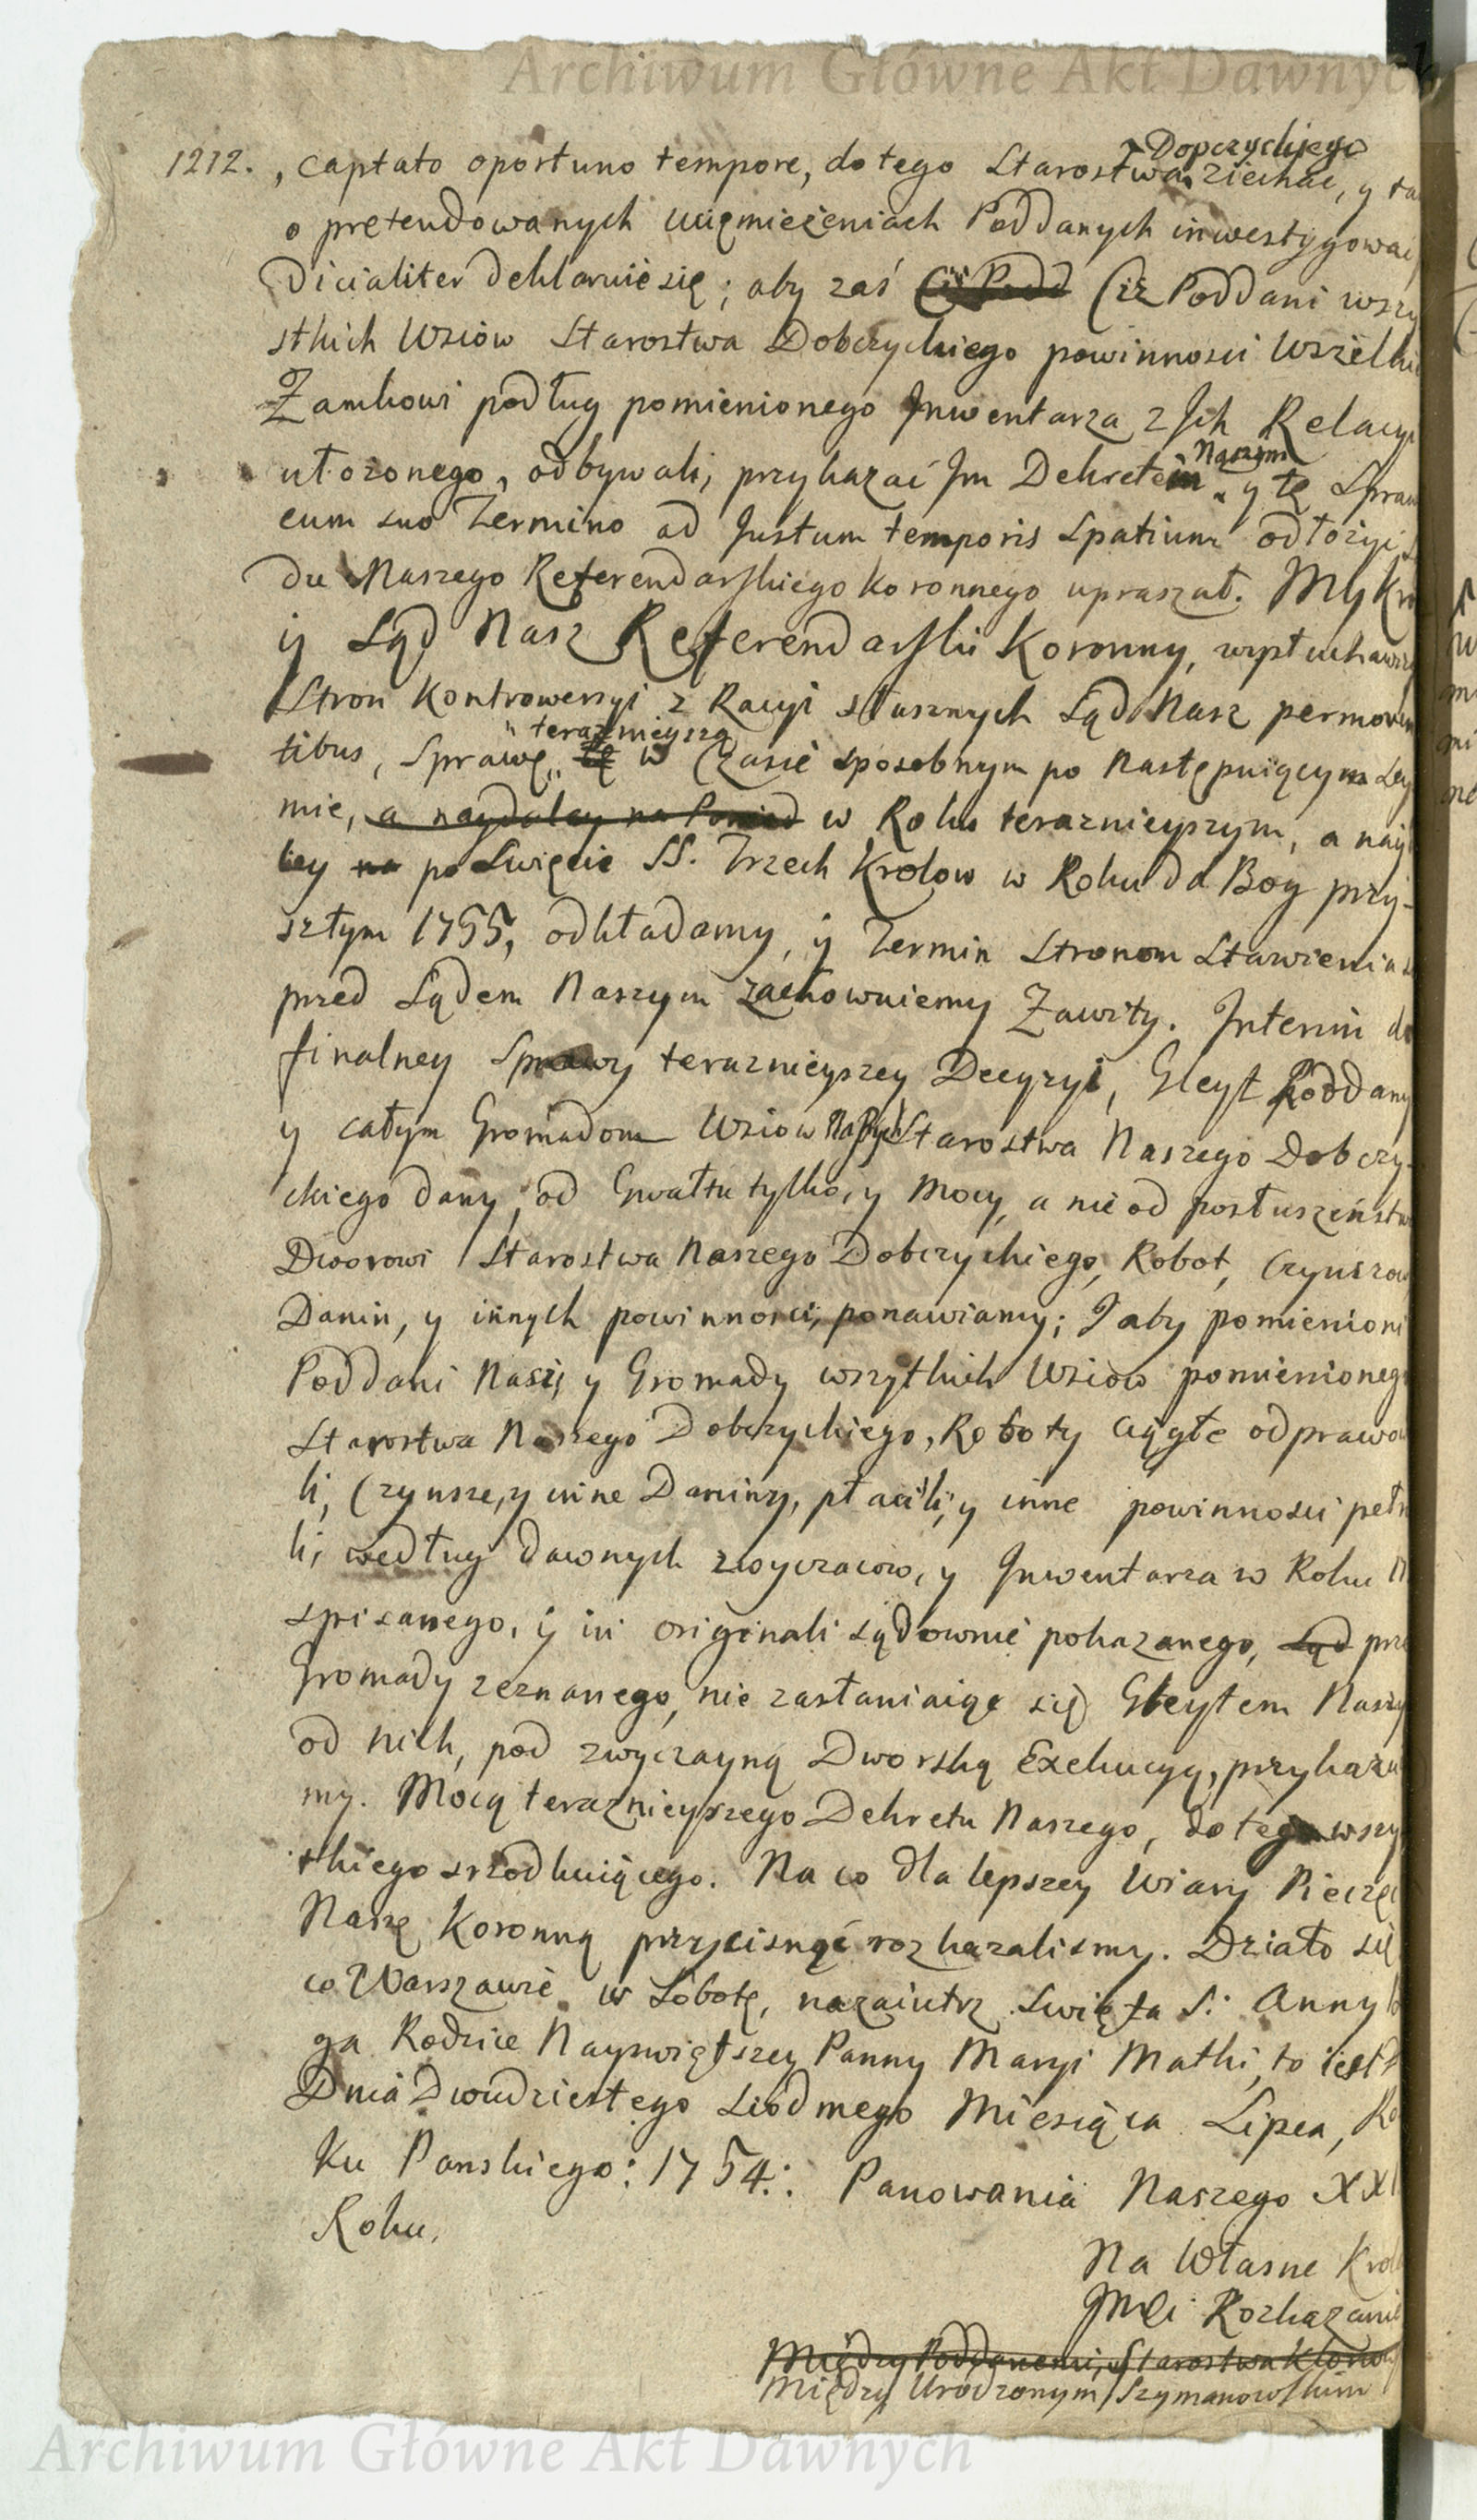 Archiwum Główne Akt Dawnych
Dopczyckiego
1212. , captato oportuno tempore, do tego Starostwa ziechać, y ta
o pretendowanych uciemiężeniach Poddanych inwestygować
dicialiter deklaruie się; aby zaś Ciż Podd Ciż Poddani wszy
stkich Wsiow Starostwa Dobczyckiego powinnosci wszelki
Zamkowi podług pomienionego Inwentarza z Ich Relacyi
ułożonego, odbywali, przykazać Im Dekretem Naszym y tę Spraw
cum suo Termino ad Justum temporis Spatium odłożyć, S
du Naszego Referendarskiego Koronnego upraszał. My Kro
ij Sąd Nasz Referendarski Koronny, wysłuchawszy
Stron Kontrowersyi z Racyi słusznych Sąd Nasz permoven
terazniejszą
tibus, Sprawę tę w Czasie sposobnym po następuiącym Sey
mie, a naydaley na Ponied w Roku terazniejszym, a nayd
ley na po Swięcie SS. Trzech Krolow w Roku da Bog przy-
szłym 1755, odkładamy, ij Termin Stronom Stawienia s
przed Sądem Naszym zachowuiemy Zawity. Interim do
finalney Sprawy terazniejszey Decyzyi, Gleyt Poddany
y całym Gromadom Wsiow Naszych Starostwa Naszego Dobczy-
ckiego dany, od Gwałtu tylko, y Mocy, a nie od posłuszeństw
Dworowi Starostwa Naszego Dobczyckiego, Robot, Czynszow
Danin, y innych powinnosci, ponawiamy; I aby pomienioni
Poddani Nasi, y Gromady wszytkich Wsiow pomienionego
Starostwa Naszego Dobczyckiego, Roboty ciągłe odprawow
li, Czynsze, y inne Daniny, płacili, y inne powinnosci pełn
li, według dawnych zwyczaiow, y Inwentarza w Roku 17
spisanego, ij in originali sądownie pokazanego, Sąd prze
Gromady zeznanego, nie zasłaniaiąc się Gleytem Naszy
od nich, pod zwyczayną Dworską Exekucyą, przykazu
my. Mocą terazniejszego Dekretu Naszego, do tego wszy
stkiego srzodkuiącego. Na co dla lepszey Wiary Pieczęć
Naszę Koronną przycisnąć rozkazalismy. Działo się
w Warszawie w Sobotę, nazaiutrz Swięta S: Anny B
ga Rodzice Nayswiętszey Panny Maryi Matki, to iest
Dnia Dwudziestego Siodmego Miesiąca Lipca, Ro
ku Panskiego: 1754: Panowania Naszego XXI
Roku.
Na Własne Krol
JMCi Rozkazanie
Między Poddanemi, Starostwa Klonow
Między Urodzonym Szymanowskim
Archiwum Główne Akt Dawnych